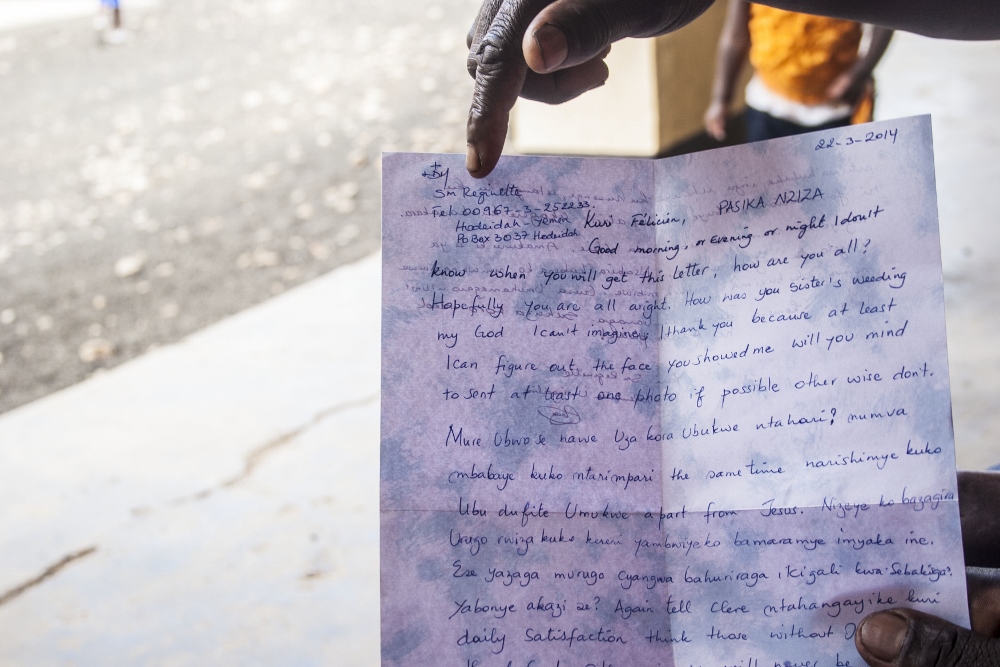 22-3-2014
Sm Reginette
Tel: 00967-3-252233.
Hodeidah-Yemen
Po Box 3037 Hodeidah
Kuri Félicien, PASIKA NZIZA
Good morning, or Evening or night I don't
know when you will get this Letter, how are you all?
Hopefully you are all aright. How was you Sister's weeding
my God I can't imagine, I thank you because at least
I can figure out the face you showed me will you mind
to sent at least one photo if possible other wise don't.
Mure Ubwo se nawe Uza kora Ubukwe ntahari? numva
mbabaye kuko ntarimpari the same time narishimye kuko
Ubu dufite Umukwe apart from Jesus. Nizeye ko bazagira
Urugo rwiza kuko kuri yambwiye ko bamaramye imyaka ine.
Ese yazaga murugo cyangwa bahuriraga ikigali kwa
Yabonye akazi se? Again tell Clere ntahangayike kuri
daily Satisfaction think those without
will never be